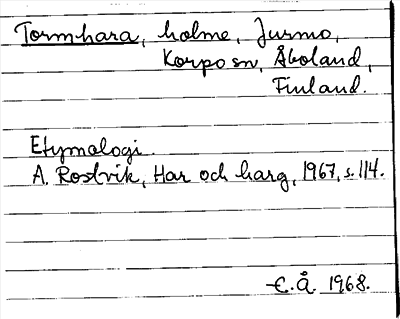 Tormhara, holme, Jurmo,
Korpo sn, Åboland,
Finland.
Etymologi.
A. Rostvik, Har och harg, 1967, s. 114.
E.Å. 1968.